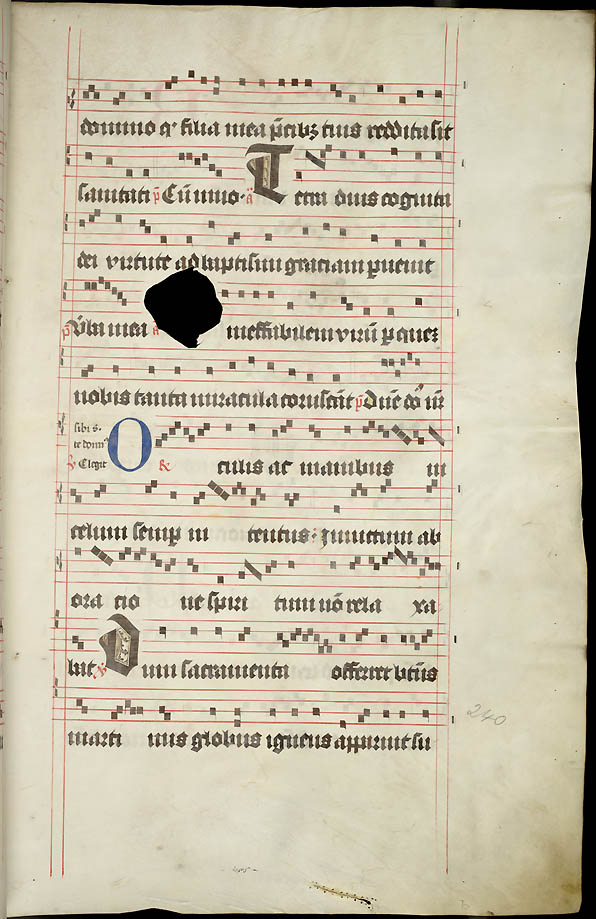 domino q' filia mea p̄cibʒ tuis reddita sit
sanitati p̄ Cū uiuo. a Tetra diuis cognita
dei virtute ad baptismi graciam puenit
p̄ Vba mea a ineffabilem virū p quez
nobis tanta miracula coruscāt p̄ dn̄e
sibi s.
te dom'
Elegit
R O culis ac manibus in
celum semp in tentus. Inuictum ab
ora cio ne spiri tum nō rela xa
bat V Dum sacramenta offerret btūs
marti nus globus igneus apparuit su
240